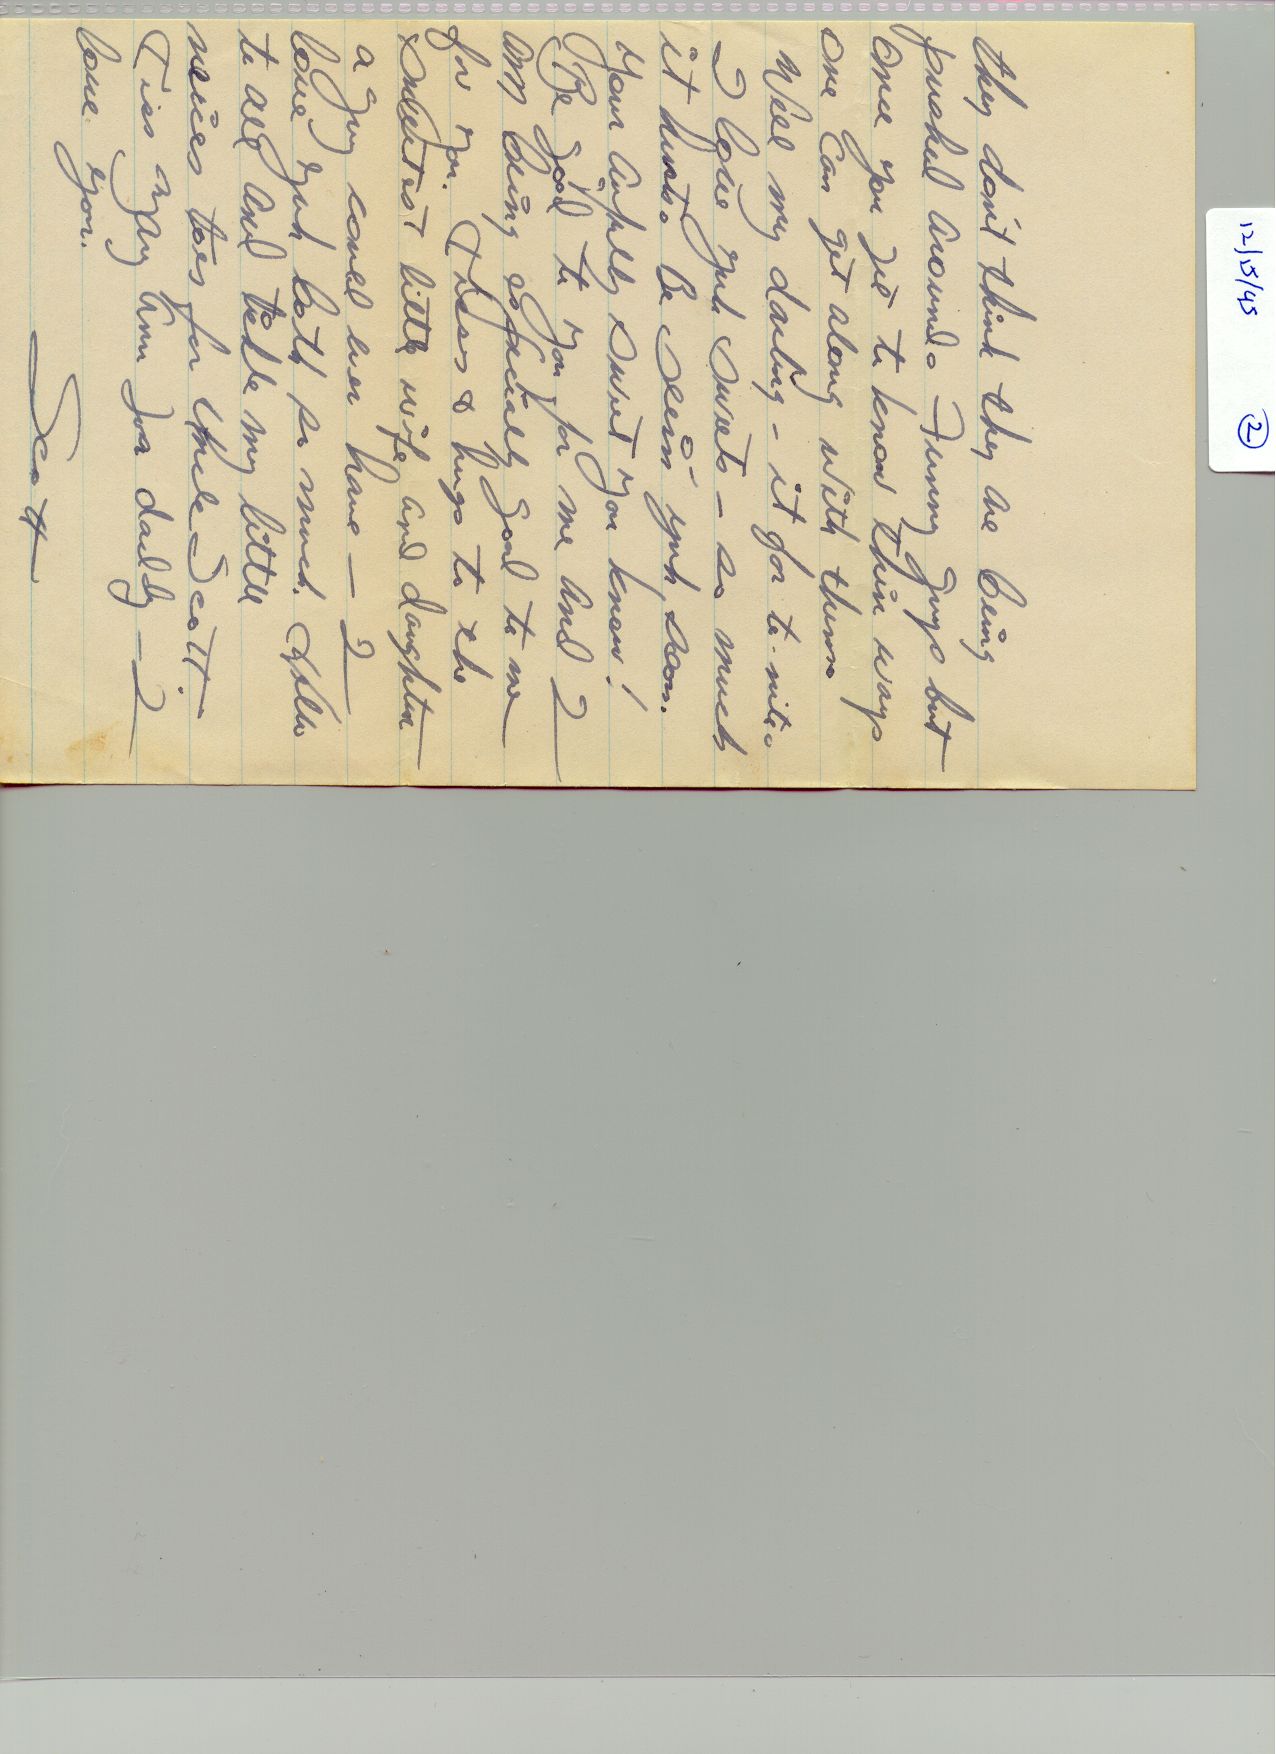 12/15/45 ②
they don't think they are being
pushed around. Funny guys but
once you get to know thier ways
one can get along with them.
Well my darling - it for to-nite.
I love yuh sweets - so much
it hurts. Be seein' yuh, soon.
Your awfully sweet you know!
Be good to you for me and I
am being especially good to me
for you. Kisses & hugs to the
sweetest little wife and daughter
a guy could ever have - I
love yuh both so much. Hello
to all and tell my little
neices toes for Uncle Scott.
Kiss Mary Ann for daddy - I
love you.
Scott